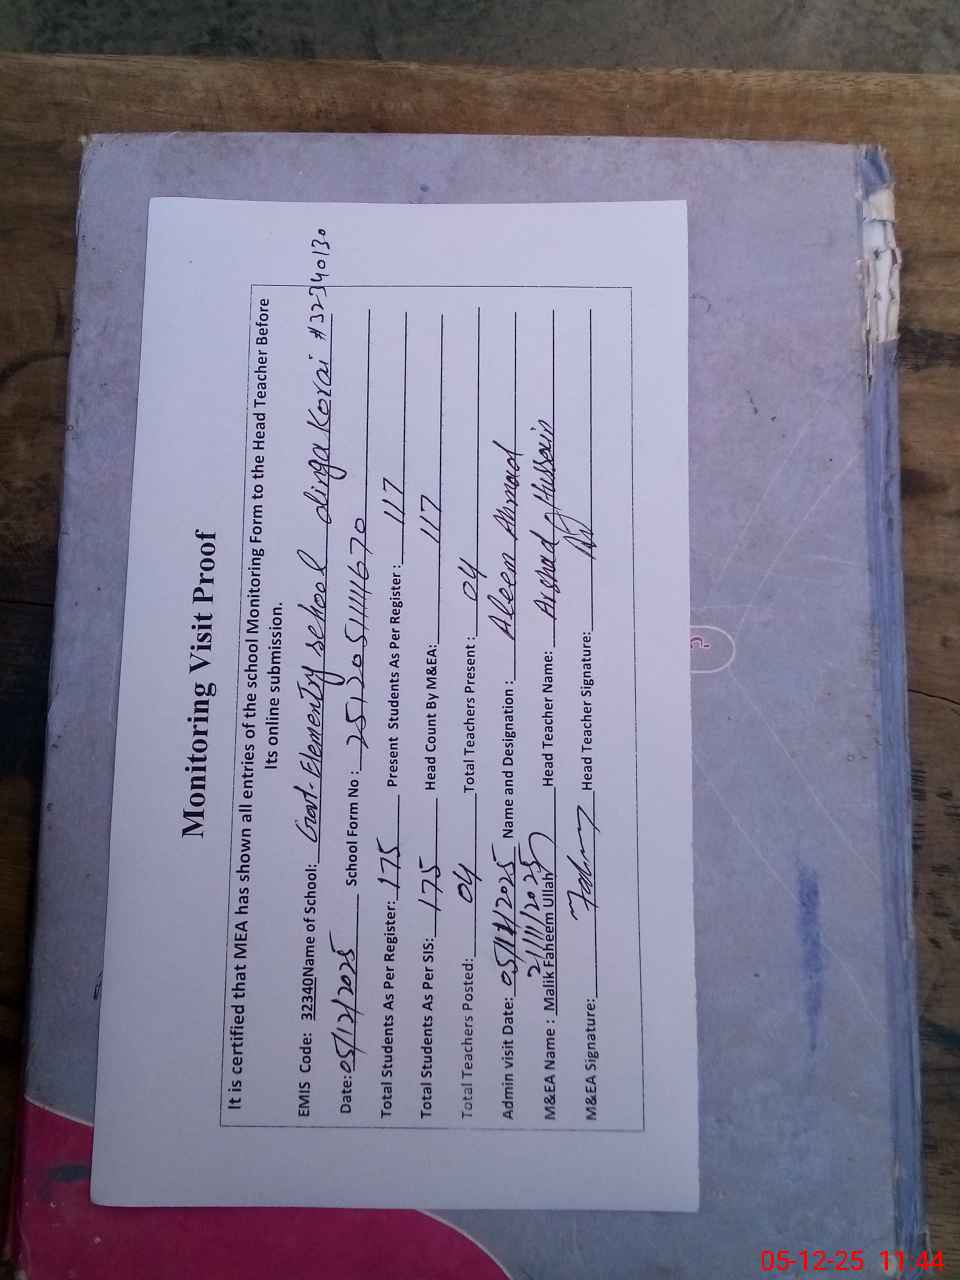 Monitoring Visit Proof
It is certified that MEA has shown all entries of the school Monitoring Form to the Head Teacher Before
Its online submission.
EMIS Code: 32340 Name of School: Govt. Elementry school dinga Korai #32340130
Date: 05/12/2025 School Form No: 251205111111670
Total Students As Per Register: 175 Present Students As Per Register: 117
Total Students As Per SIS: 175 Head Count By M&EA: 117
Total Teachers Posted: 04 Total Teachers Present: 04
Admin visit Date: 05/12/2025 Name and Designation: Aleem Ahmad
21/11/2025
M&EA Name: Malik Faheem Ullah Head Teacher Name: Arshad Hussain
M&EA Signature: Head Teacher Signature:
05-12-25 11:44